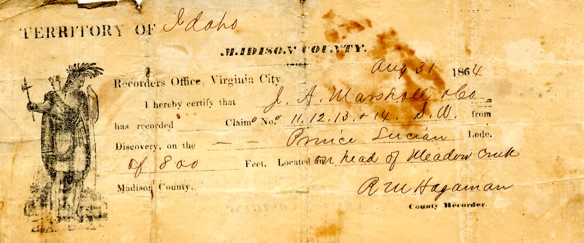 TERRITORY OF Idaho
MADISON COUNTY.
Aug 31 1864
Recorders Office, Virginia City
I hereby certify that J. A. Marshall & Co.
has recorded Claim⁵ No.ˢ 11, 12, 13, & 14. S.W. from
Discovery, on the — — Prince Lucian Lode.
of 800 Feet. Located head of Meadow Creek
Madison County. R M Hagaman
County Recorder.